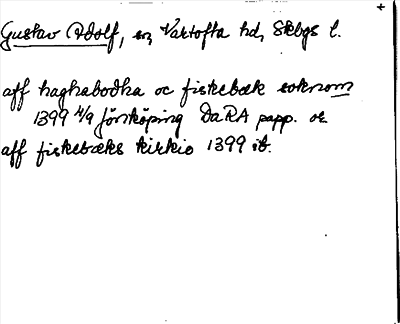 Gustav Adolf, sn, Vartofta hd, Skbgs l.
aff haghabodha oc fiskebæk soknom
1399 4/9 Jönköping DaRA papp. or.
aff fiskebæks kirkio 1399 ib.